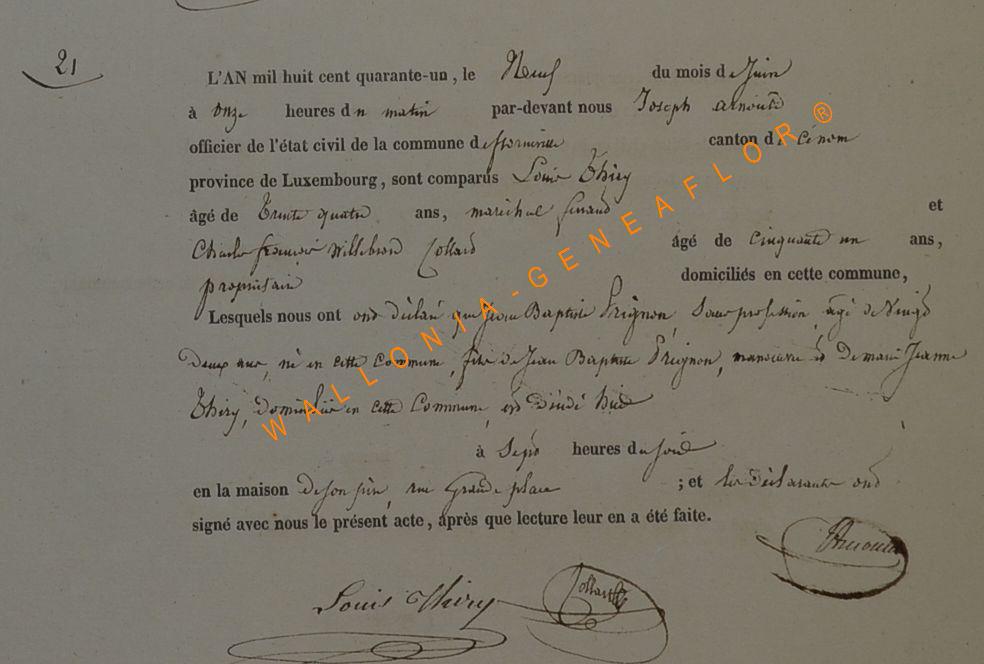 21
L'AN mil huit cent quarante-un, le Neuf du mois de Juin
à onze heures du matin par-devant nous Joseph arnould
officier de l'état civil de la commune de florenville canton d'
province de Luxembourg, sont comparus Louis Thiry
âgé de Trente quatre ans, marechal ferrand et
Charle françois Willebrord Collard âgé de Cinquante un ans,
proprietaire domiciliés en cette commune,
Lesquels nous ont ont déclaré que Jean Baptiste Prignon, Sans profession, agé de Vingt
Deux ans, né en cette Commune, fils de Jean Baptiste Prignon, manoeuvre et De marie Jeanne
Thiry, Domiciliés en cette Commune, est décédé hier
à Sept heures du soir
en la maison de son père, rue Grande place ; et les déclarants ont
signé avec nous le présent acte, après que lecture leur en a été faite.
Arnould
Louis Thiry Collard
WALLONIA-GENEAFLOR®